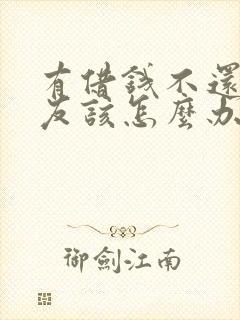 有借錢不還
友該怎麼办
御劍江南